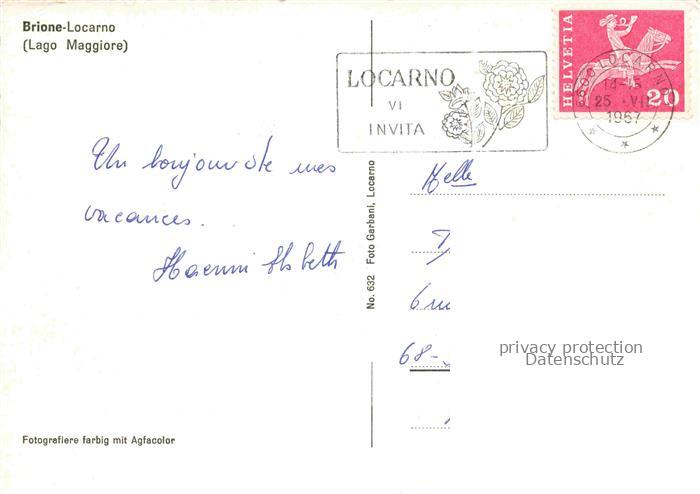 Brione-Locarno
(Lago Maggiore)
LOCARNO
VI
INVITA
HELVETIA
20
LOCARNO
25 .VII
1967
Un bonjour de mes
vacances.
Haenni Elsbeth
No. 632 Foto Garbani, Locarno
Melle
6
68-
privacy protection
Datenschutz
Fotografiere farbig mit Agfacolor